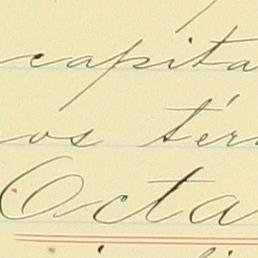 capita
os tér
Octa